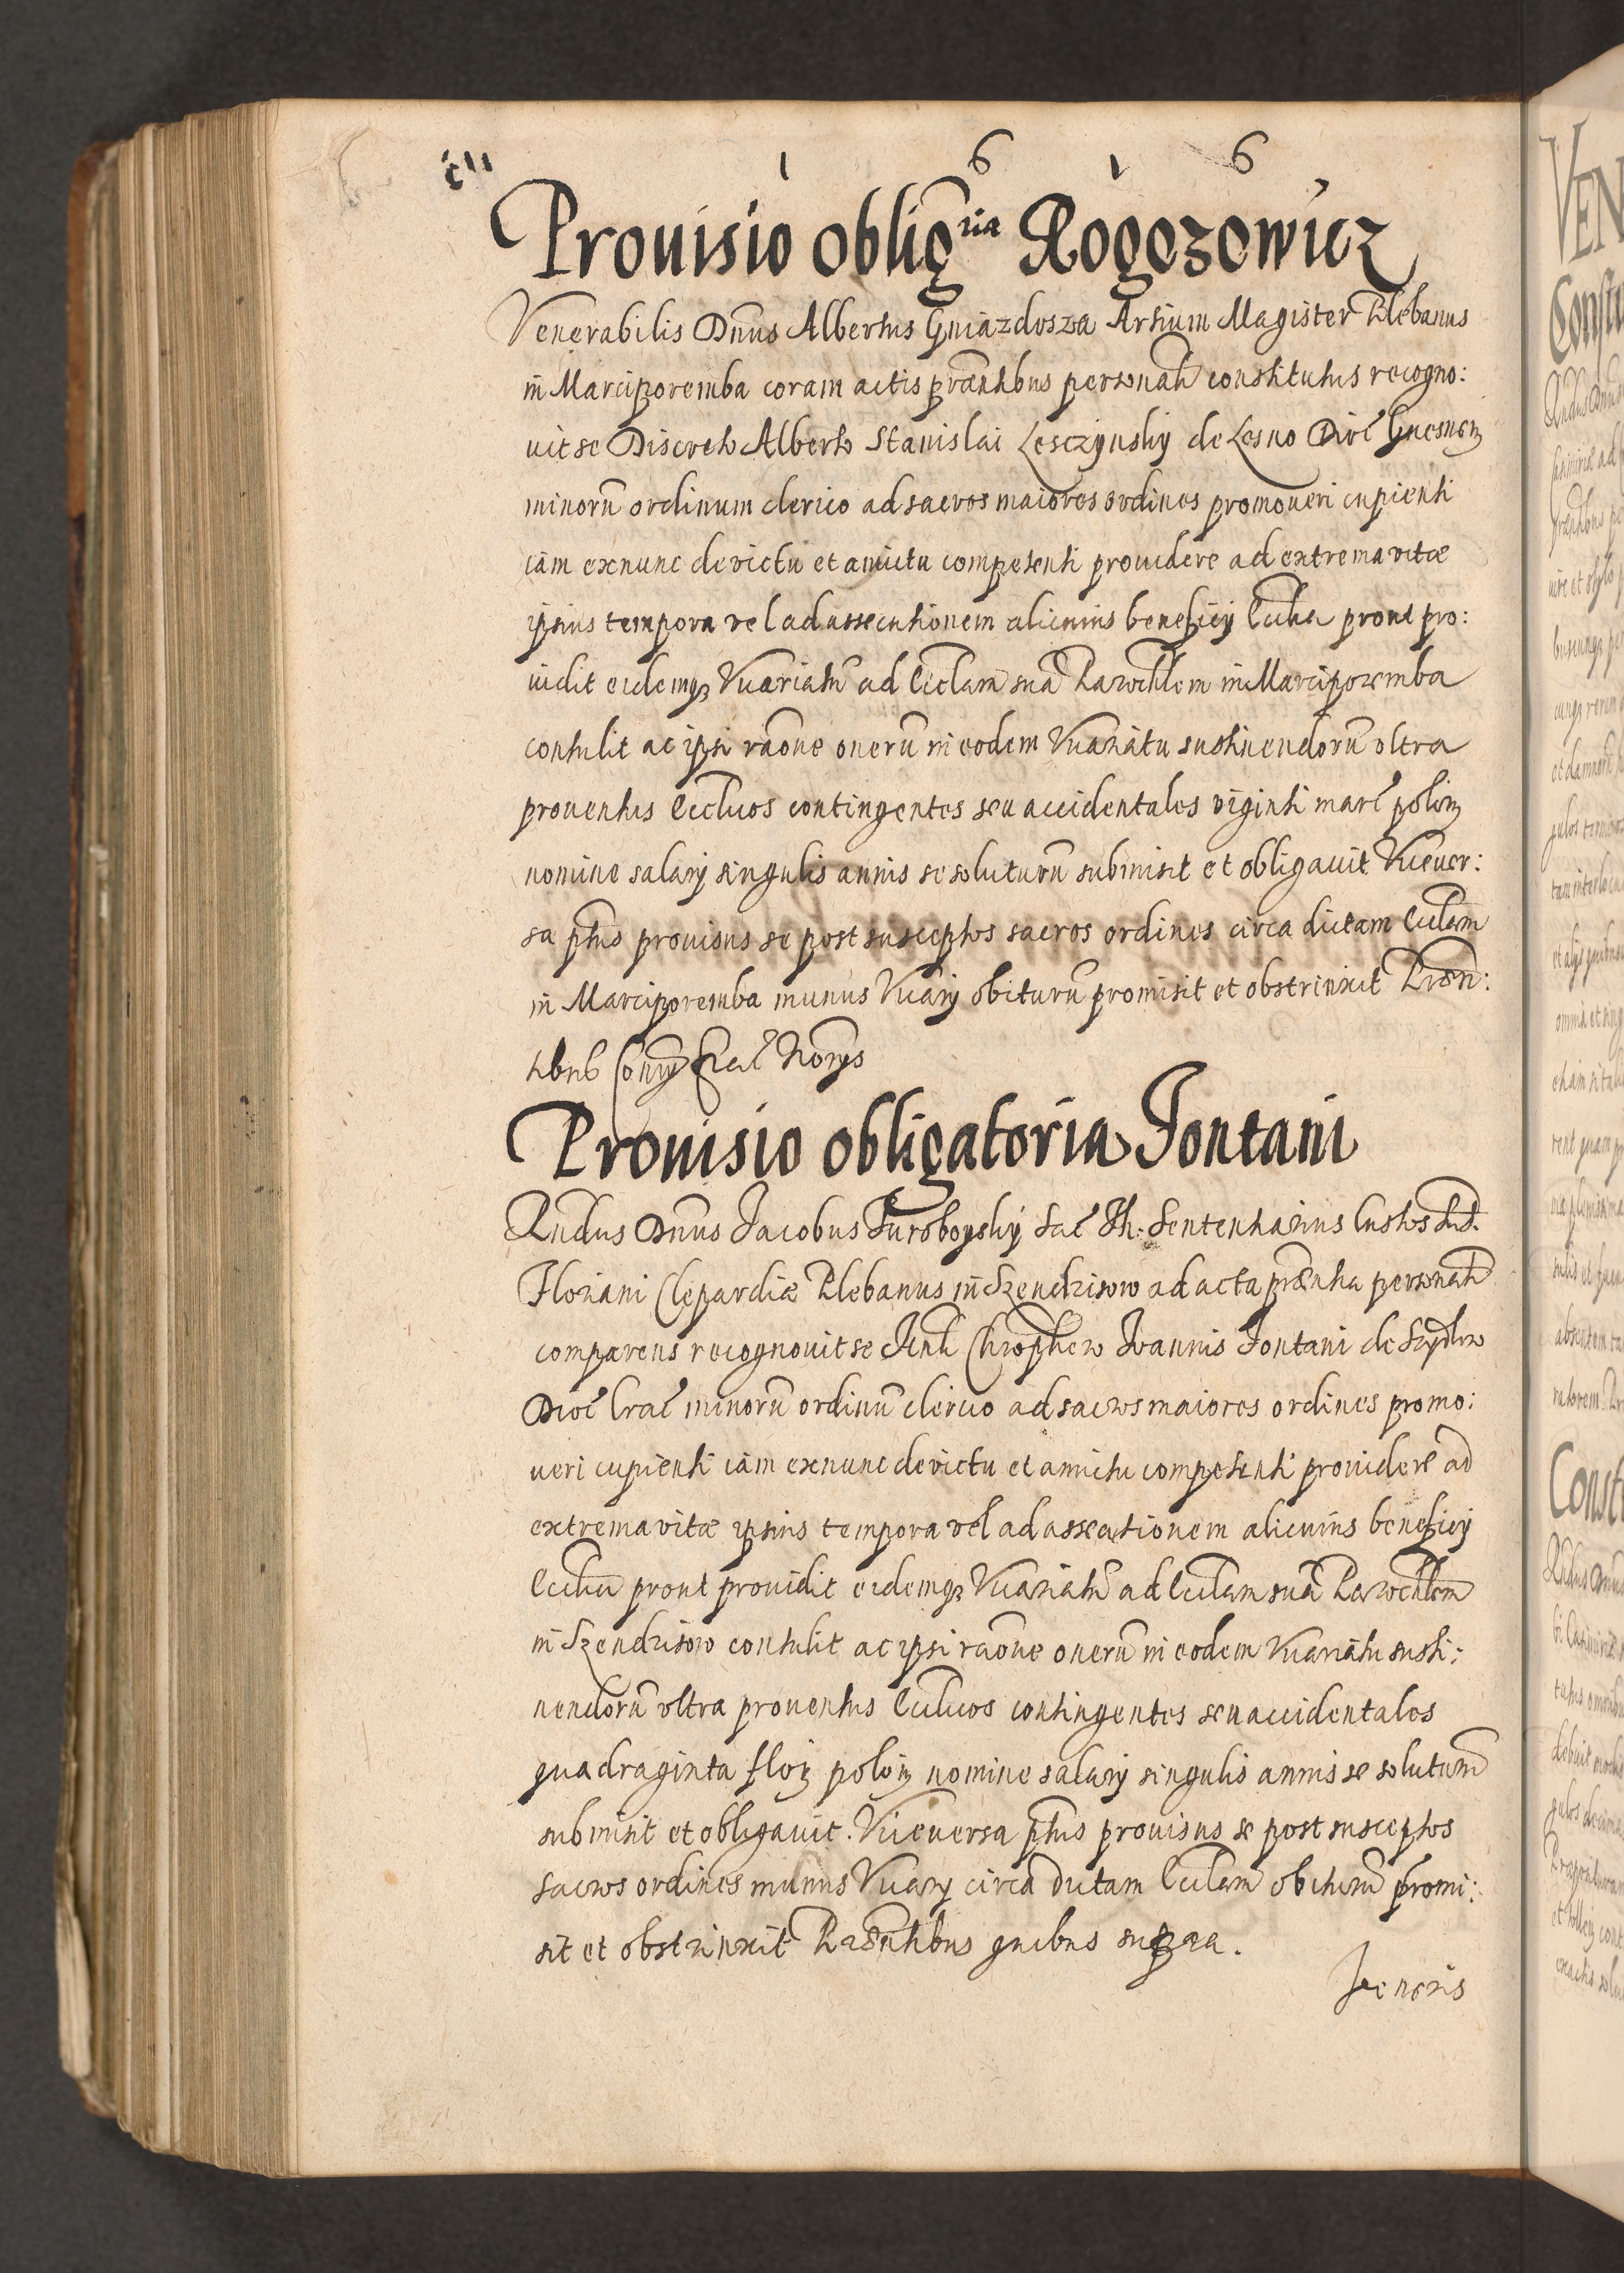 1 6 1 6
Prouisio oblig<sup>ria</sup> Rogozowicz
Venerabilis Dnus Albertus Gniazdosza Artium Magister Plebanus
in Marciporemba coram actis præntibus personalr constitutus recogno:
uit se Discreto Alberto Stanislai Lesczÿnskÿ de Lesno Dioc Gnesnen
minorũ ordinum clerico ad sacros maiores ordines promoueri cupienti
iam exnunc de victu et amictu competenti prouidere ad extrema vitæ
ipsius tempora vel ad assecutionem alicuius beneficÿ Ecclici prout pro:
uidit eidemq3 Vicariatũ ad Ecclam suã Parochlem in Marciporemba
contulit ac ipsi raõne onerũ in eodem Vicariatu sustinendorũ vltra
prouentus Ecclicos contingentes seu accidentales viginti marc polon
nomine salarÿ singulis annis se soluturũ submisit et obligauit Viceuer:
sa ptus prouisus se post susceptos sacros ordines circa dictam Ecclam
in Marciporemba munus Vicarÿ obiturũ promisit et obstrinxit Præn:
tibus
Prouisio obligatoria Fontani
Rndus Dnus Jacobus Turoboyskÿ Sac Th. Sententiarius Custos Sti
Floriani Clepardiæ Plebanus in Szendziszow ad acta præntia personalr
comparens recognouit se Christophoro Joannis Fontani de Szydlow
Dioc Crac minorũ ordinũ clerico ad sacros maiores ordines promo:
ueri cupienti iam exnunc de victu et amictu competenti prouidere ad
extrema vitæ ipsius tempora vel ad assecutionem alicuius beneficÿ
Ecclici prout prouidit eidemq3 Vicariatũ ad Ecclam suã Parochlem
in Szendziszow contulit ac ipsi raõne onerũ in eodem Vicariatu susti:
nendorũ vltra prouentus Ecclicos contingentes seu accidentales
quadraginta flon polon nomine salarÿ singulis annis se soluturũ
submisit et obligauit. Viceuersa ptus prouisus se post susceptos
sacros ordines munus Vicarÿ circa dictam Ecclam obiturũ promi:
sit et obstrinxit Præsentibus quibus supra.
Veneris